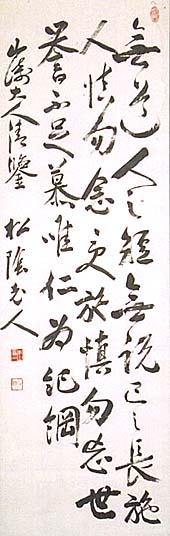 無道人之短無説己之長施
人慎勿念受施慎勿忘世
譽不足慕唯仁為紀綱
大人清鑒 松陰老人